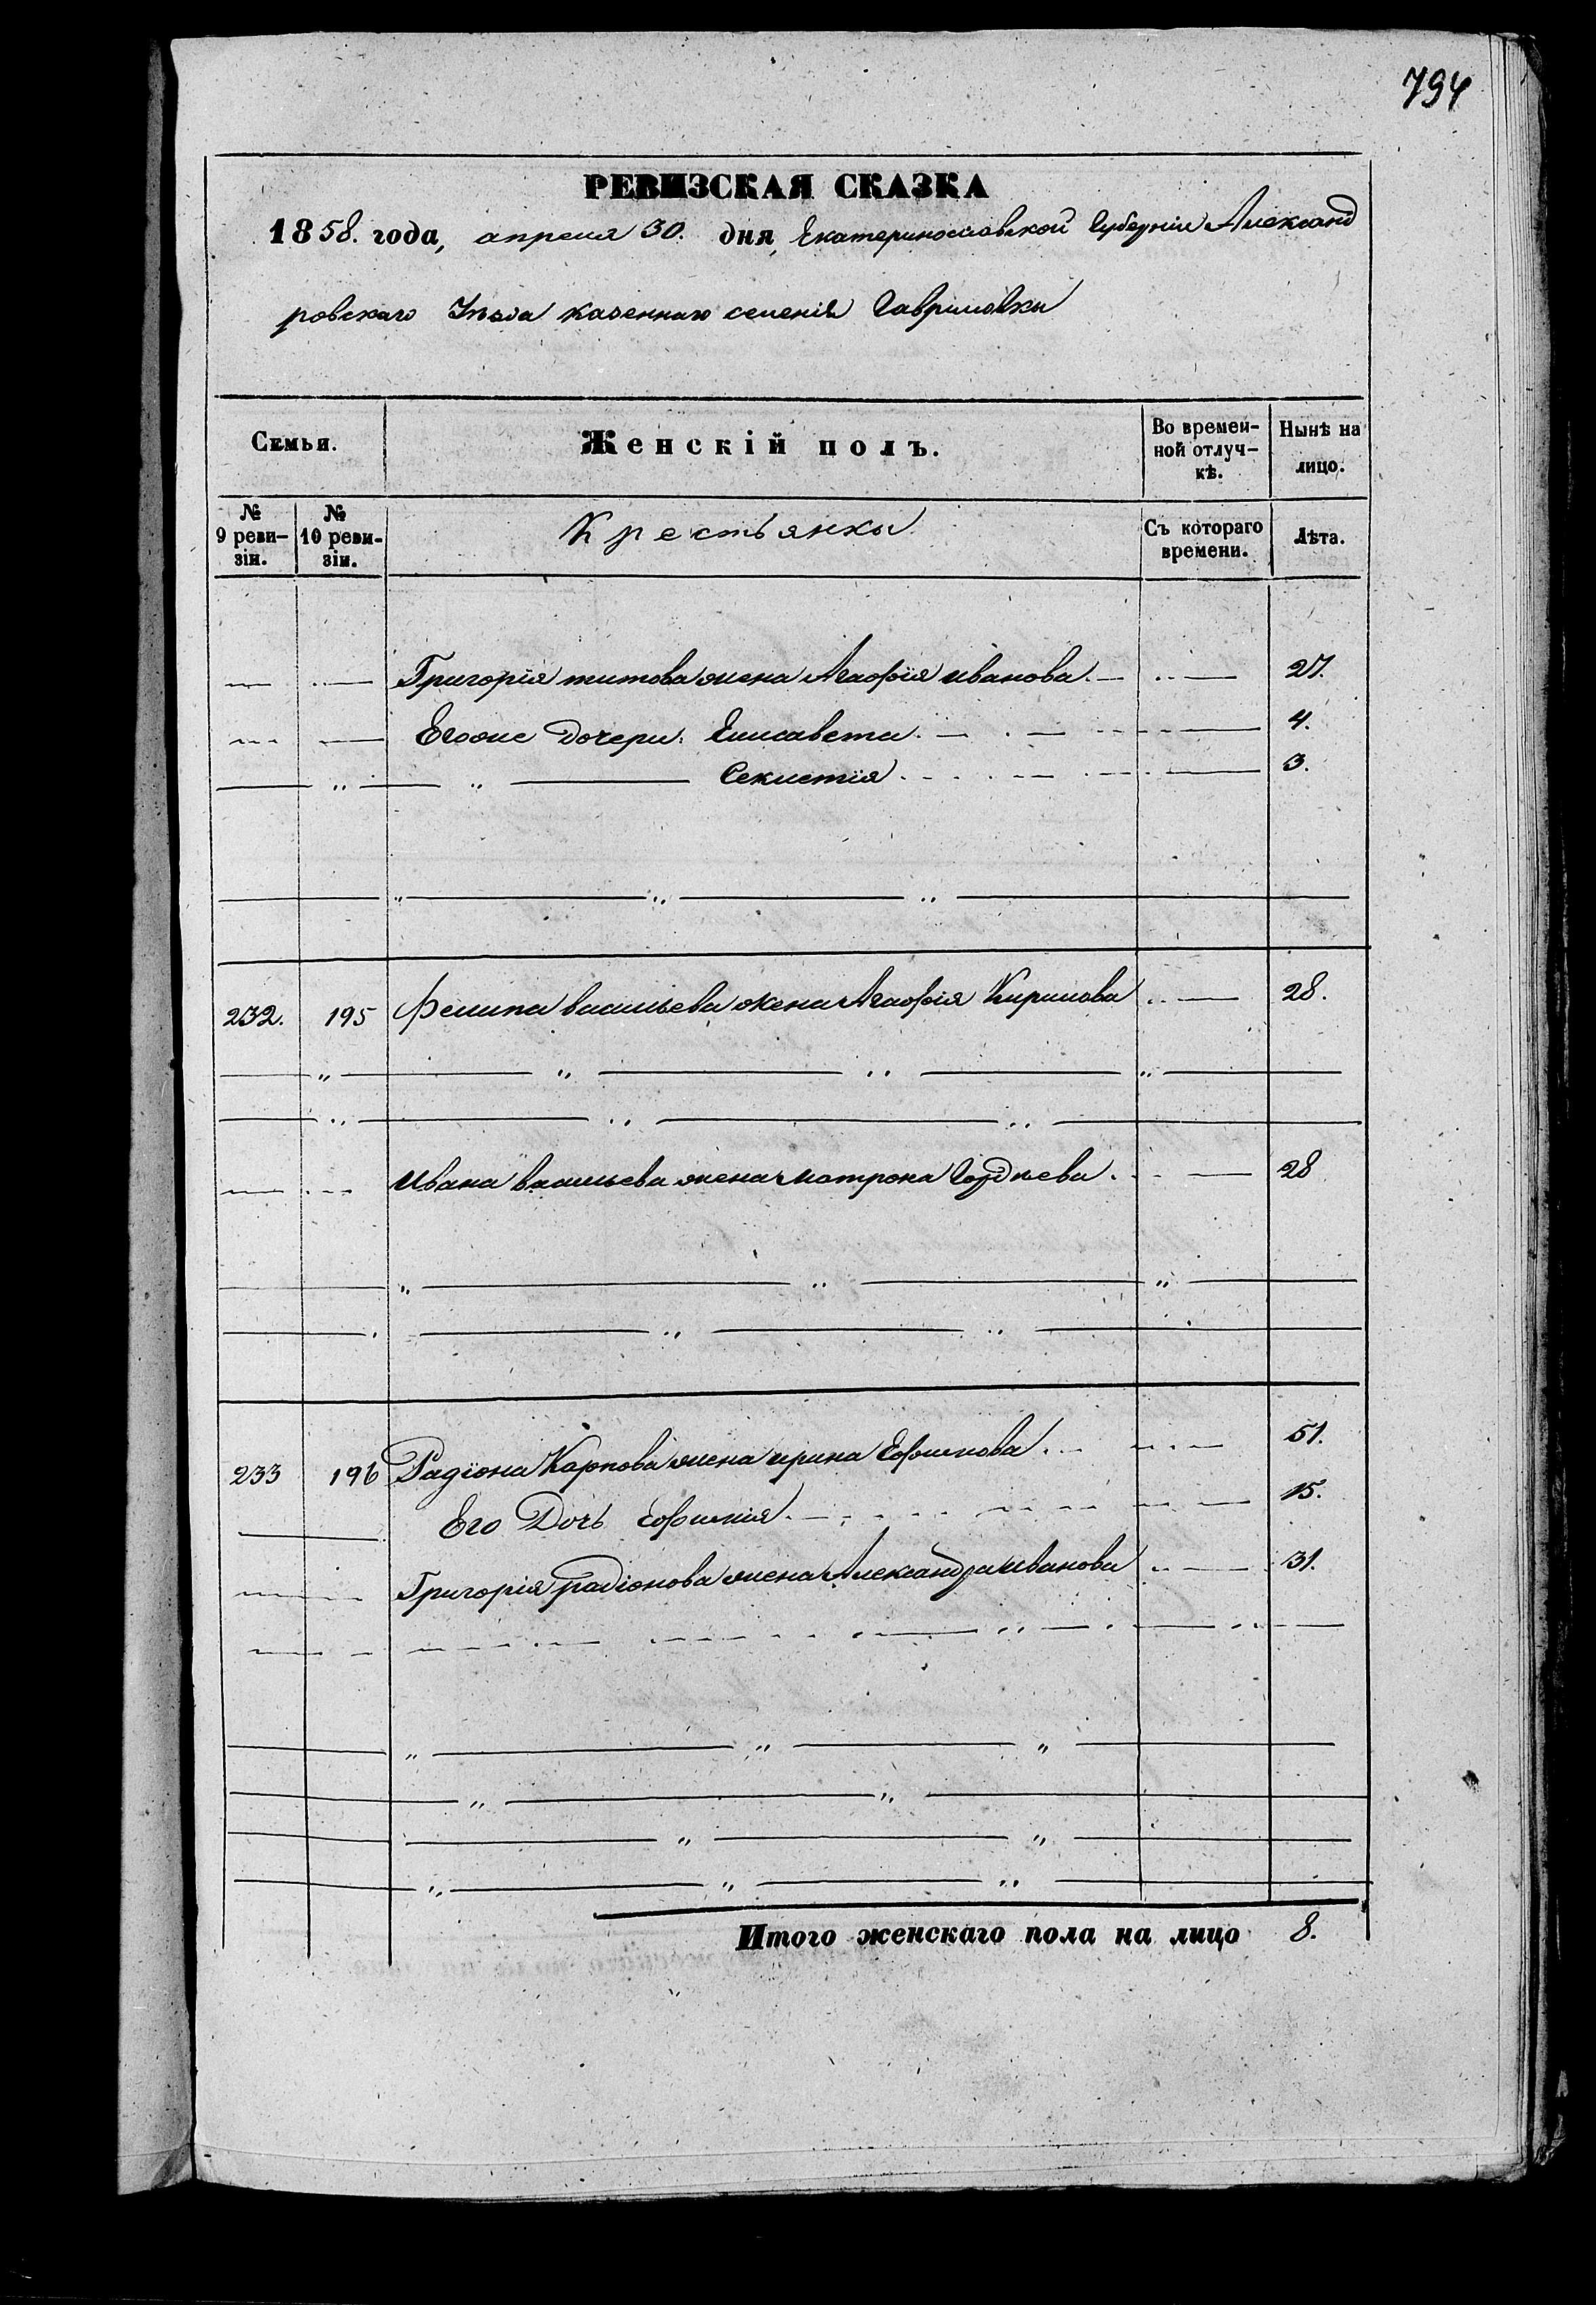 794
РЕВИЗСКАЯ СКАЗКА
1858. года, апреля 30. дня, Екатеринославской Губерніи Александ
ровскаго Уѣзда казеннаго селенія Гавриловки
Семьи.
Женскій полъ.
Во времен-
ной отлуч-
кѣ.
Нынѣ на
лицо.
№
9 реви-
зіи.
№
10 реви-
зіи.
Крестьянки
Съ котораго
времени.
Лѣта.
Григорія титова жена Агафія иванова. 27.
Егоже Дочери: Елисавета. 4.
" Секлетія. 3.
232. 195 Филипа васильева жена Агафія Кирилова 28.
Ивана васильева жена матрона Гордѣева. 28
233 196 Радіона Карпова жена ирина Ефимова. 51.
Его Дочь Ефимія. 15.
Григорія радіонова жена Александра иванова 31.
Итого женскаго пола на лицо 8.